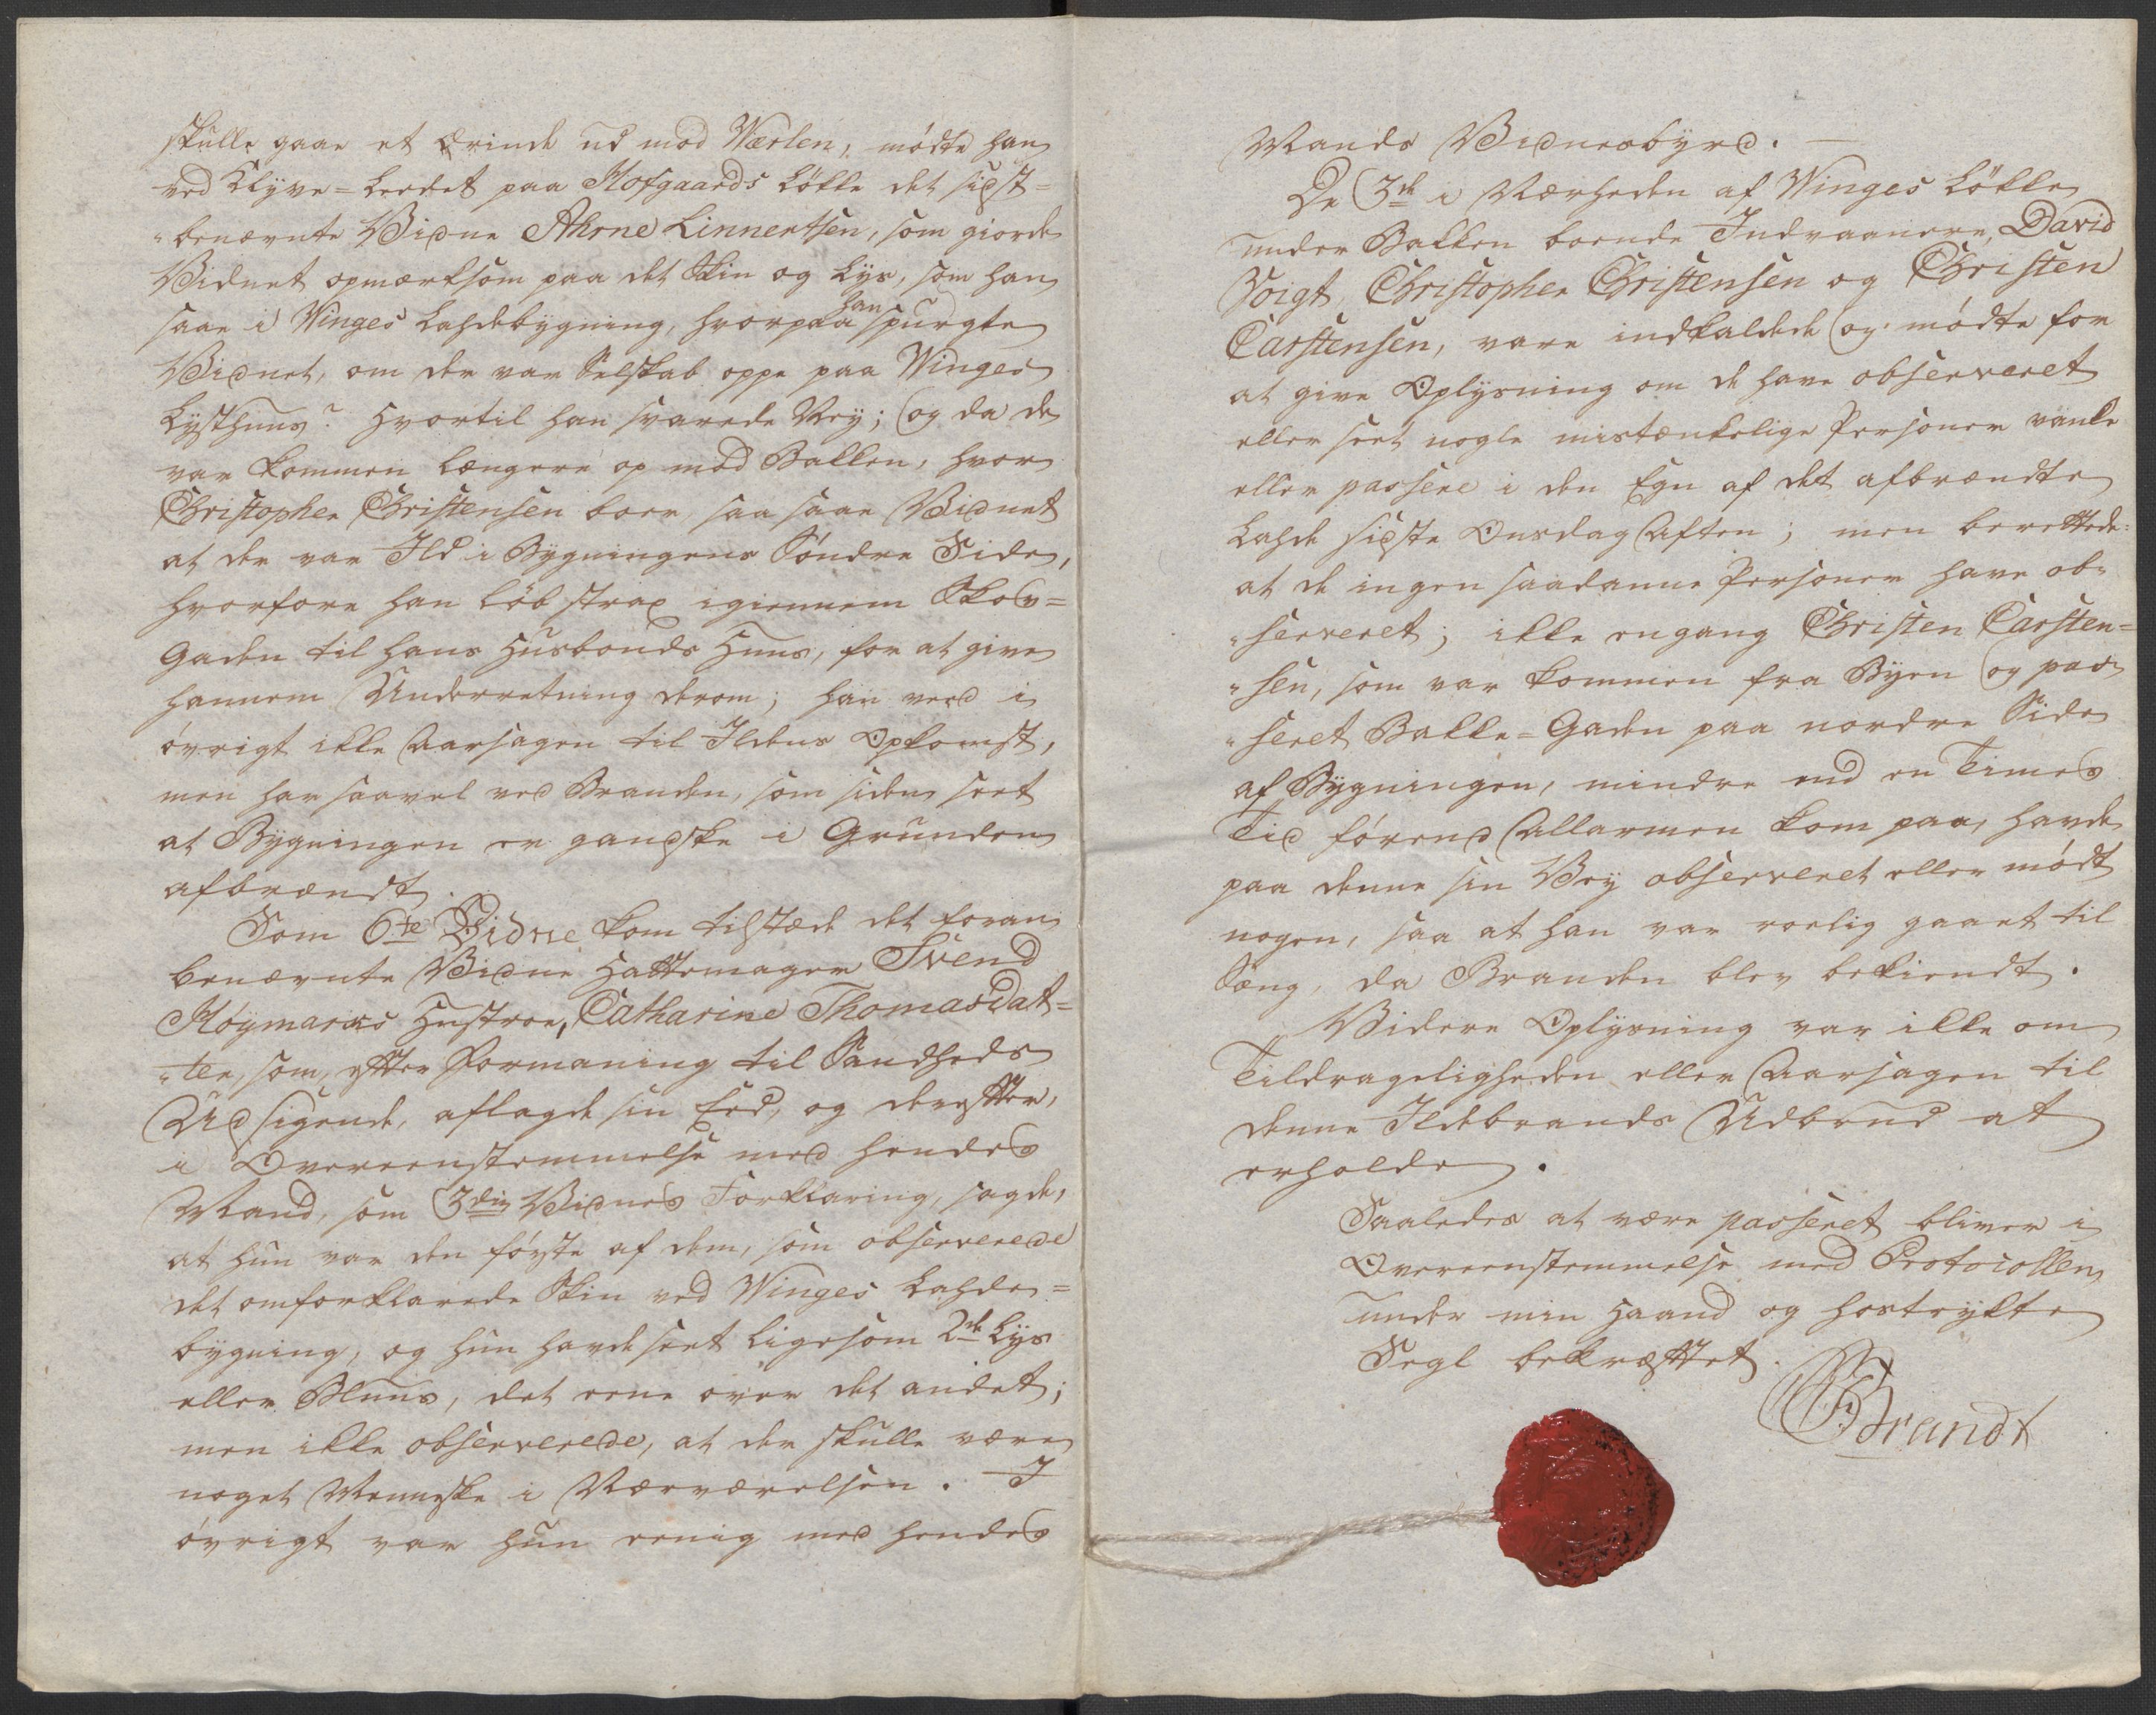 skulle gaae et Ærinde ud mod Wærlen, mødte han
ved Klyve-Leedet paa Hofgaards Løkke det sidst-
benævnte Vidne Ahrne Linnertsen, som giorde
Vidnet opmærksom paa det Skin og Lys, som han
saae i Winges Lahdebygning, hvorpaa han spurgte
Vidnet, om der var Selskab oppe paa Winges
Lysthuus? Hvortil han svarede Ney; og da de
var kommen længere op mod Bakken, hvor
Christopher Christensen boer, saa saae Vidnet
at der var Ild i Bygningens Søndre Side,
hvorfore han løb strax igiennem Skov-
Gaden til hans Husbonds Huus, for at give
hannem Underretning derom; han veed i
øvrigt ikke Aarsagen til Ildens Opkomst,
men har saavel ved Branden, som siden seet
at Bygningen er gandske i Grunden
afbrændt.
Som 6te Vidne kom tilstæde det foran
benævnte Vidne Hattemager Svend
Høymarks Hustroe, Catharine Thomasdat-
ter, som, efter Formaning til Sandheds
Udsigende, aflagde sin Eed, og derefter,
i Overeenstemmelse med hendes
Mand, som 3die Vidnes Forklaring, sagde,
at hun var den første af dem, som observerede
det omforklarede Skin ved Winges Lahde-
bygning, og hun havde seet ligesom 2de Lys
eller Bluus, det eene over det andet;
men ikke observerede, at der skulle være
noget Menneske i Nærværelsen. I
øvrigt var hun eenig med hendes
Mands Vidnesbyrd.
De 3de i Nærheden af Winges Løkke
under Bakken boende Indvaanere, David
Voigt, Christopher Christensen og Christen
Carstensen, vare indkaldede og mødte for
at give Oplysning om de have observeret
eller seet nogle mistænkelige Personer vanke
eller passere i den Egn af det afbrændte
Lahde sidste Onsdag Aften; men berettede
at de ingen saadanne Personer have ob-
serveret; ikke engang Christen Carsten-
sen, som var kommen fra Byen og pas-
seret Bakke-Gaden paa nordre Side
af Bygningen, mindre end en Times
Tid førend Allarmen kom paa, havde
paa denne sin Vey observeret eller mødt
nogen, saa at han var roelig gaaet til
Sæng, da Branden blev bekiendt.
Videre Oplysning var ikke om
Tildrageligheden eller Aarsagen til
denne Ildebrands Udbrud at
erholde.
Saaledes at være passeret bliver i
Overeenstemmelse med Protocollen
under min Haand og hostrykte
Segl bekræftet.
Brandt